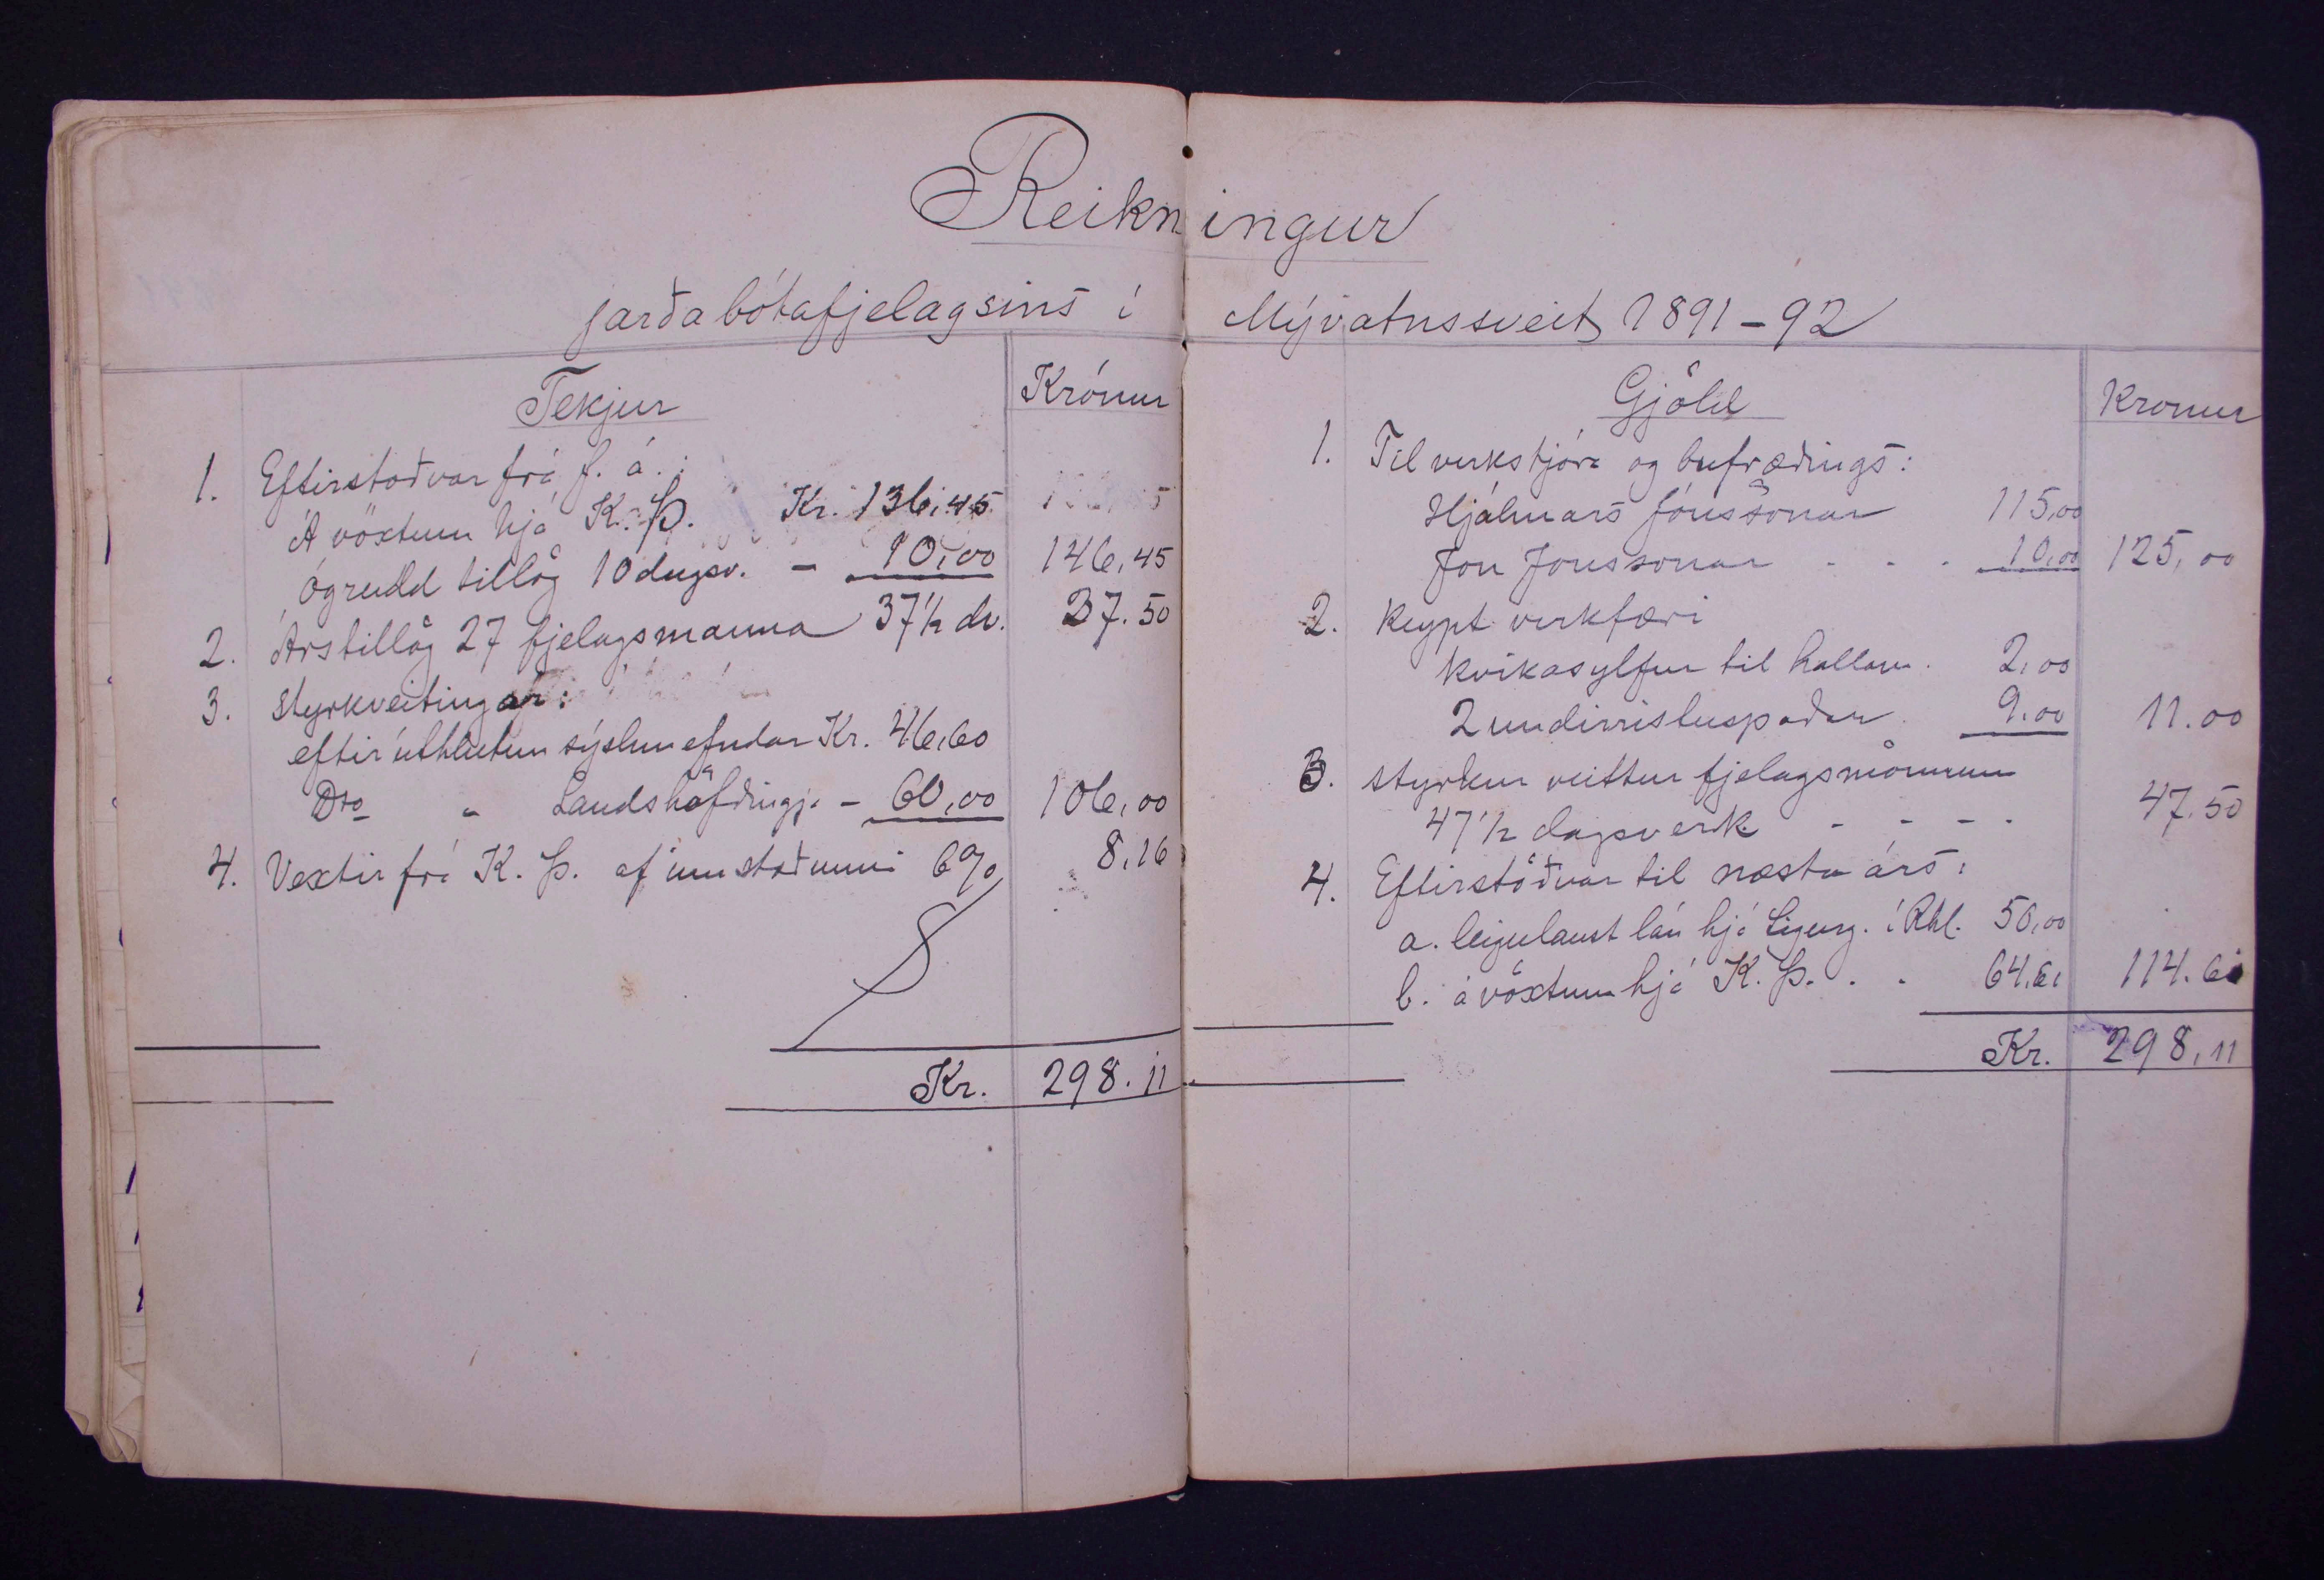 Reikningur
jarðabótafjelagsins í Mývatnssveit 1891-92
Tekjur Krónur
1. Eftirstoðvar frá f. á.:
Á vöxtum hjá K. Þ. Kr. 136,45
Ógreidd tillög 10 dagsv. - 10,00 146,45
2. Árstillög 27 fjelagsmanna 37 1/2 dv. 37.50
3. Styrkveitingar:
eftir úthlutun sýslunefndar Kr. 46,60
Dto " Landshöfðingja - 60,00 106,00
4. Vextir frá K. Þ. af innstæðunni 6% 8,16
Kr. 298.11
Gjöld Kronur
1. Til verkstjóra og bufræðings:
Hjálmars Jónssonar 115,00
Jon Jonssonar - - - 10,00 125,00
2. Keypt verkfæri
kvikasylfur til hallam. 2,00
2 undirristuspaðar 9,00 11.00
3. Styrkur veittur fjelagsmönnum
47 1/2 dagsverk - - - - 47.50
4. Eftirstöðvar til næsta árs:
a. leigulaust lán hjá Sigurg. í Rhl. 50,00
b. á vöxtum hjá K. Þ. . . 64.61 114.61
Kr. 298,11